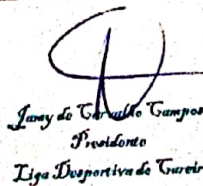 Jamy do Carvalho Campos
Presidente
Liga Desportiva de